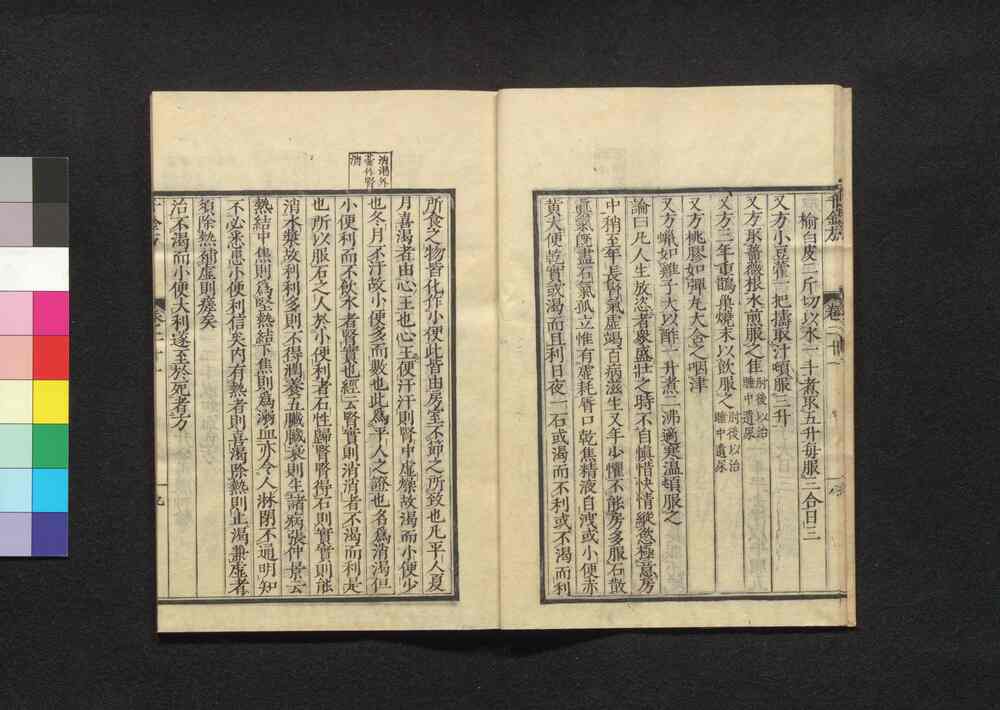 千金方 卷二十一
榆白皮二斤切以水一斗煮取五升每服三合日三
又方小豆藿一把擣取汁頓服三升
又方取薔薇根水煎服之佳肘後以治睡中遺尿
又方三年重鵲巢燒末以飲服之肘後以治睡中遺尿
又方桃膠如彈丸大含之咽津
又方蝋如雞子大以酢一升煮二沸適寒温頓服之
論曰凡人生放恣者衆盛壯之時不自慎惜快情縱慾極意房
中稍至年長腎氣虛竭百病滋生又年少懼不能房多服石散
眞氣既盡石氣孤立惟有虛耗脣口乾焦精液自洩或小便赤
黃大便乾實或渴而且利日夜一石或渴而不利或不渴而利
消渴外臺作腎消
所食之物皆化作小便此皆由房室不節之所致也凡平人夏
月喜渴者由心王也心王便汗汗則腎中虛燥故渴而小便少
也冬月不汗故小便多而數也此爲平人之證也名爲消渴但
小便利而不飲水者腎實也經云腎實則消消者不渴而利是
也所以服石之人於小便利者石性歸腎腎得石則實實則能
消水漿故利利多則不得潤養五臟臟衰則生諸病張仲景云
熱結中焦則爲堅熱結下焦則爲溺血亦令人淋閉不通明知
不必悉患小便利信矣內有熱者則喜渴除熱則止渴兼虛者
須除熱補虛則瘥矣
治不渴而小便大利遂至於死者方